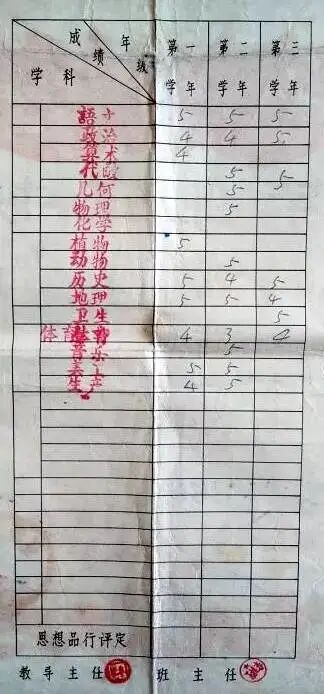 成绩 年级 学科 第一学年 第二学年 第三学年
語文 5 5 5
政治 4 4 5
算术 4
代数 5 5
几何 5 5
物理 5
化学
植物 5
动物 5
历史 5 4 5
地理 5 5 4
卫生 5
体育 4 3 4
音乐 5
美术 5 5
生产 4 5
思想品行评定
教导主任 班主任